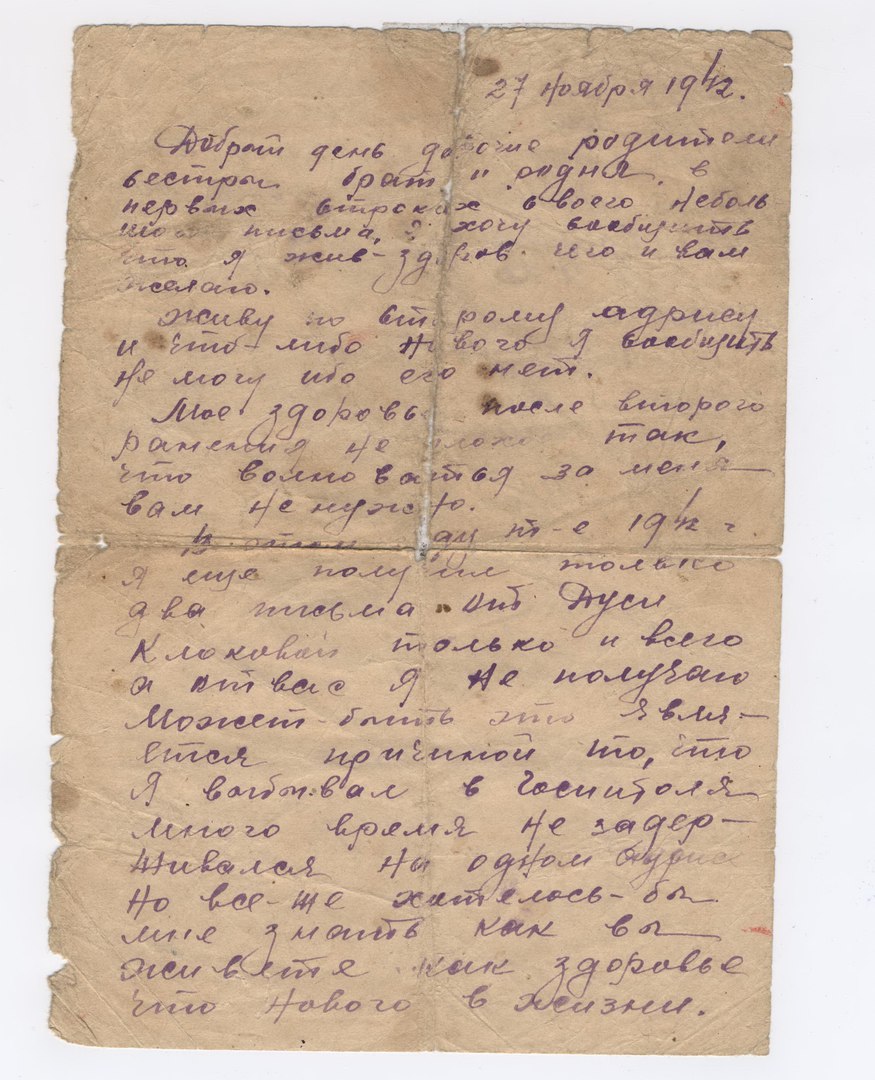 27 ноября 1942.
Добрый день дорогие родители
сестры брат и родня, в
первых строках своего неболь
шого письма, я хочу сообщить
что я жив-здоров чего и вам
желаю.
живу по старому адрису
и что-либо нового я сообщить
не могу ибо его нет.
Мое здоровье после второго
ранения не плохо так,
что волноваться за меня
вам не нужно.
В этом году т-е 1942 г
я еще получил только
два письма от Дуси
Клоковой только и всего
а от вас я не получаю
может-быть это явля-
ется причиной то, что
я выбывал в госпиталя
много время не задер-
живался ны одном адрисе
но все-же хотелось-бы
мне знать как вы
живете как здоровье
что нового в жизни.